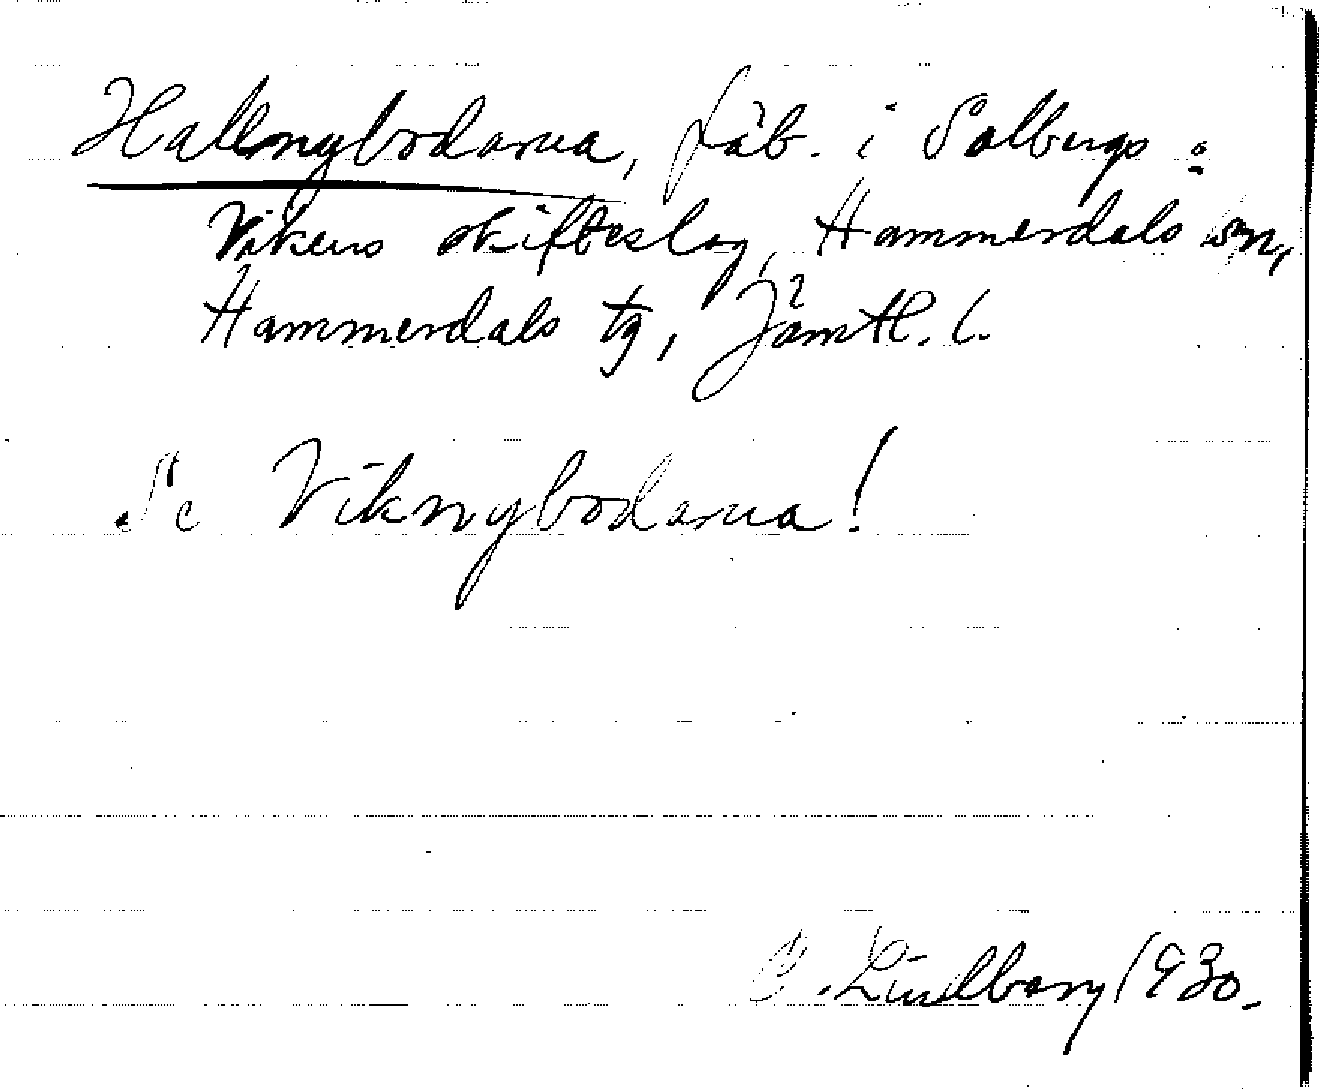 Hallnybodarna, fäb. i Solbergs o
Vikens skifteslag, Hammerdals sn,
Hammerdals tg, Jämtl. l.
Se Viknybodarna!
C. Lindberg 1930.